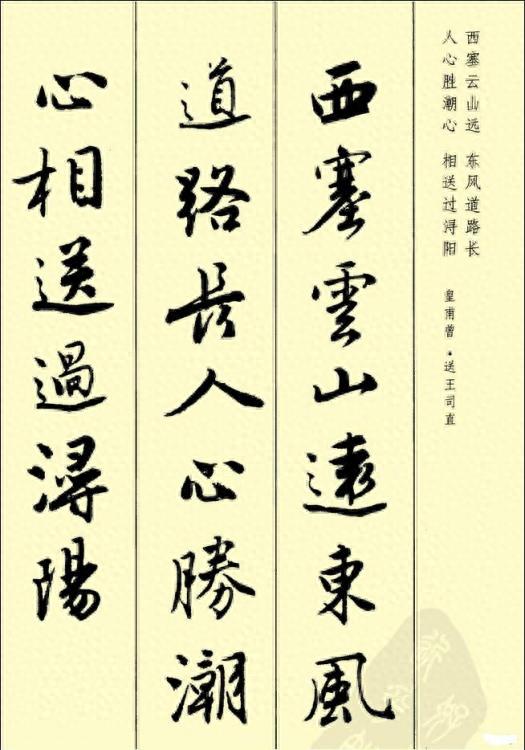 西塞云山远 东风道路长
人心胜潮心 相送过浔阳 皇甫曾·送王司直
西塞雲山遠東風
道路長人心勝潮
心相送過潯陽